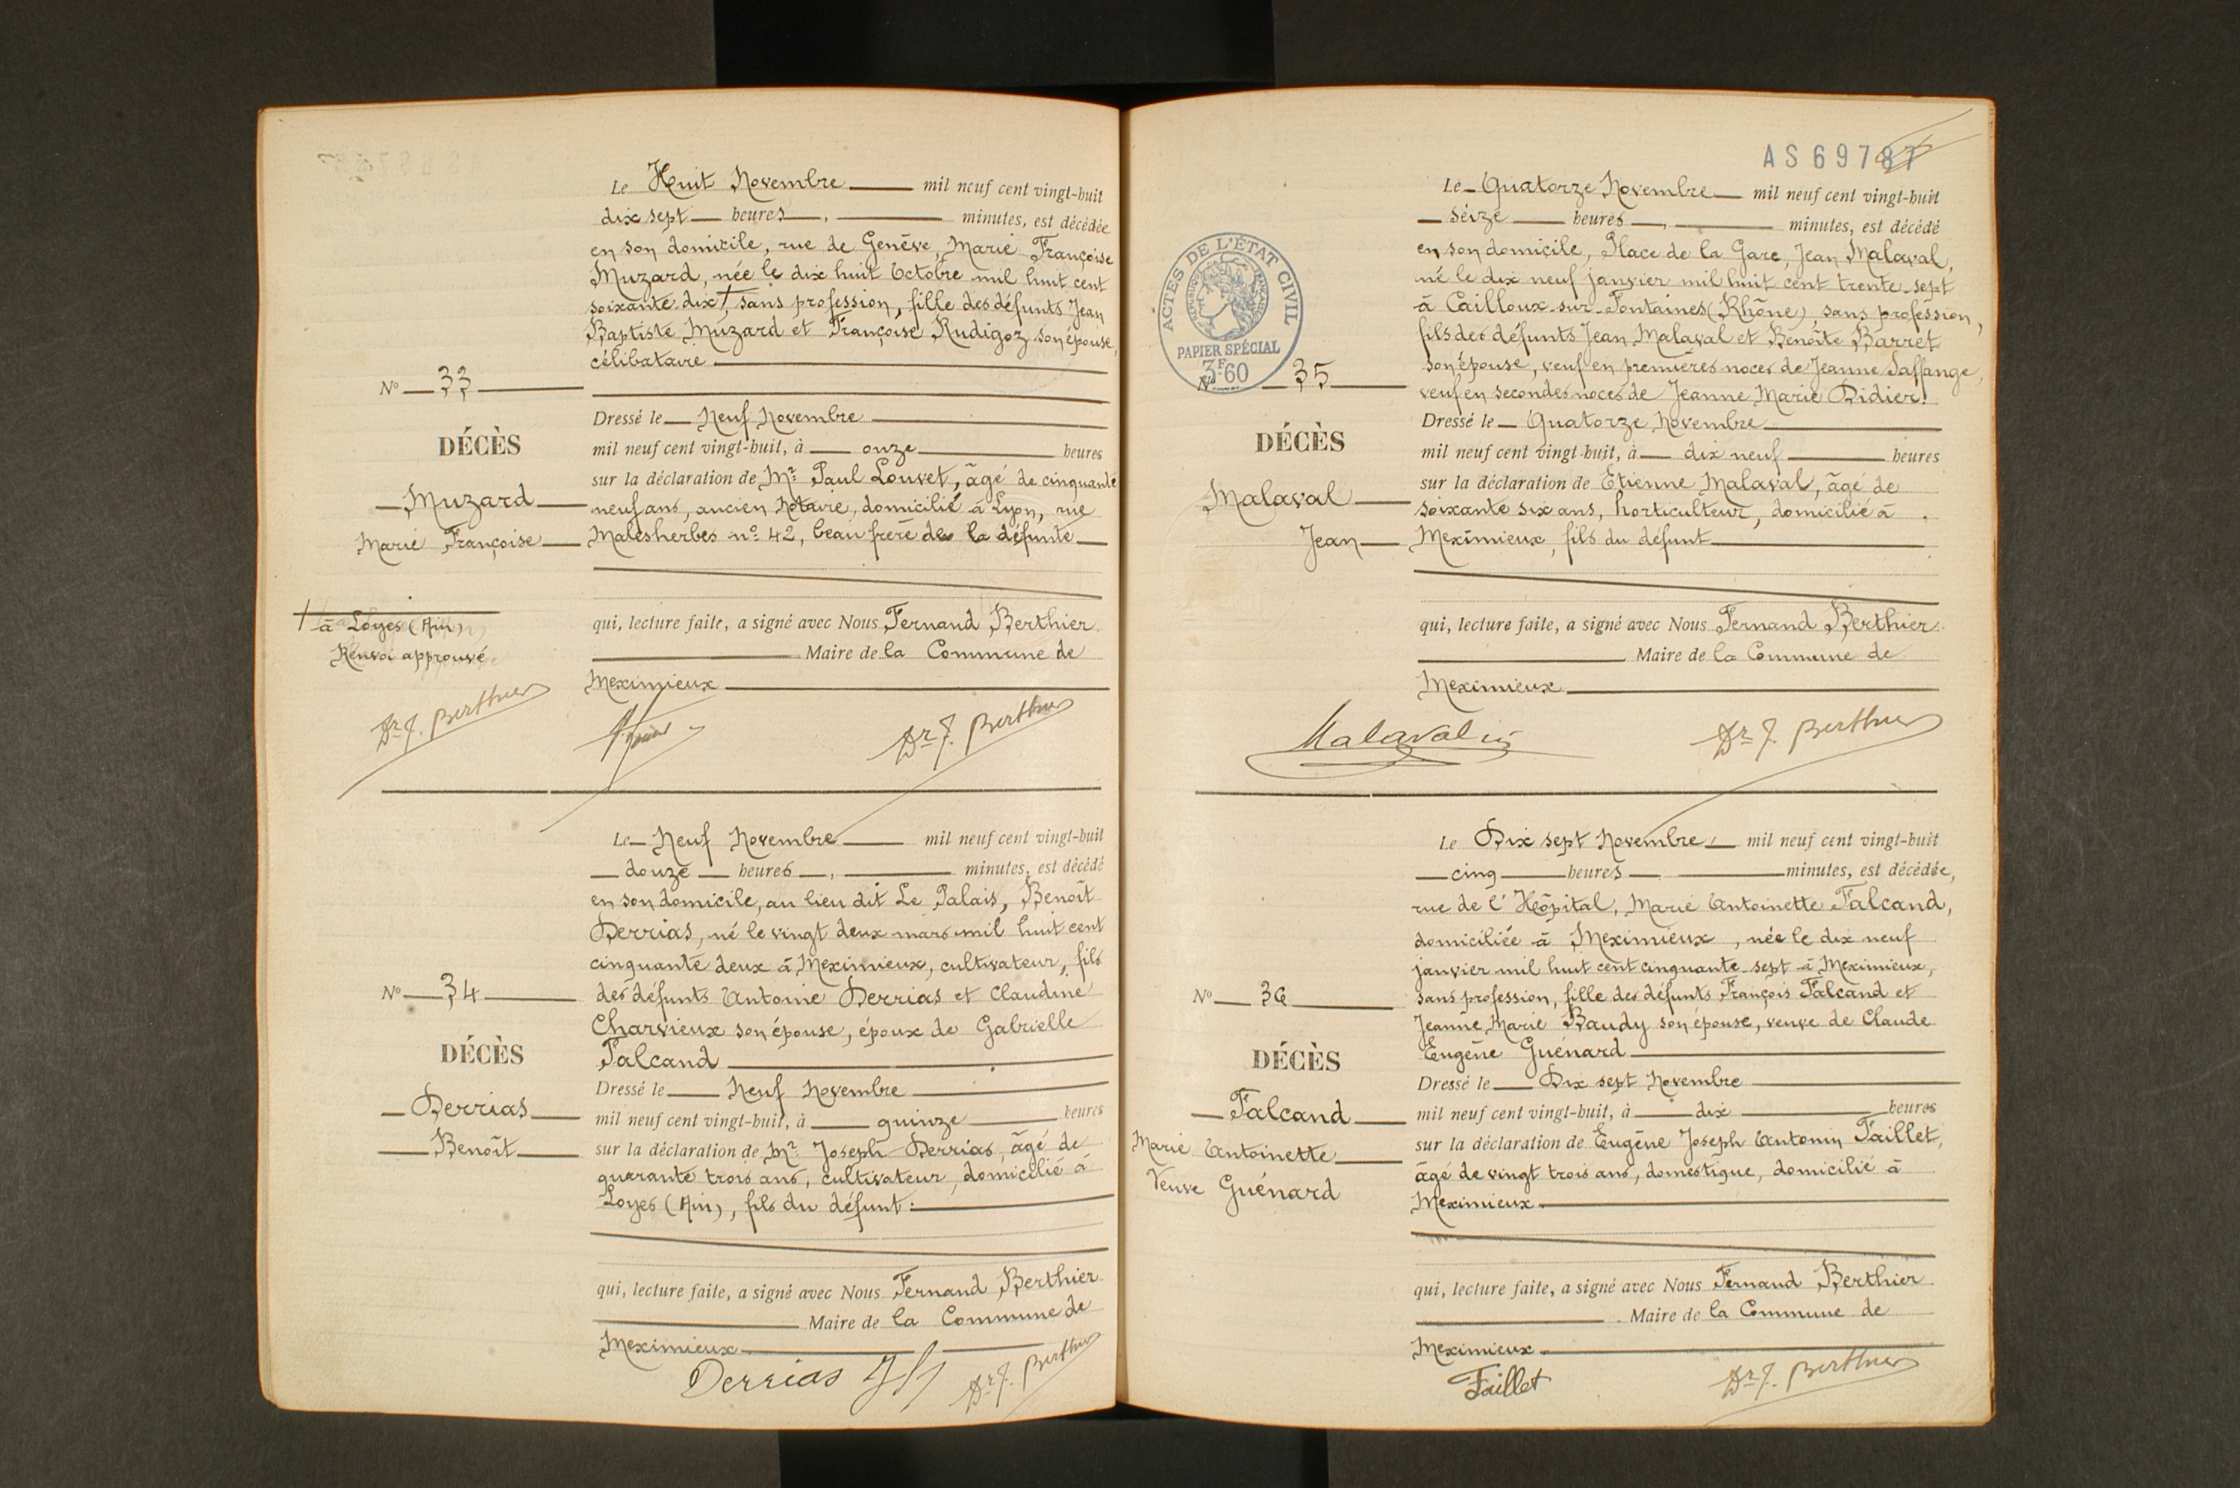 Le Huit Novembre mil neuf cent vingt-huit
dix sept heures, minutes, est décédée
en son domicile, rue de Genève, Marie Françoise
Muzard, née le dix huit Octobre mil huit cent
soixante dix † sans profession, fille des défunts Jean
Baptiste Muzard et Françoise Rudigoz son épouse,
célibataire
N° 33
Dressé le Neuf Novembre
DÉCÈS
mil neuf cent vingt-huit, à onze heures
sur la déclaration de Mr Paul Louvet, âgé de cinquante
Muzard
neuf ans, ancien Notaire, domicilié à Lyon, rue
Marie Françoise
Malesherbes n° 42, beau frère de la défunte
† à Loyes (Ain)
Renvoi approuvé
qui, lecture faite, a signé avec Nous Fernand Berthier
Maire de la Commune de
Meximieux
Dr F. Berthier
Dr F. Berthier
Le Neuf Novembre mil neuf cent vingt-huit
douze heures, minutes, est décédé
en son domicile, au lieu dit Le Palais, Benoît
Derrias, né le vingt deux mars mil huit cent
cinquante deux à Meximieux, cultivateur, fils
N° 34
des défunts Antoine Derrias et Claudine
Charvieux son épouse, époux de Gabrielle
DÉCÈS
Falcand
Dressé le Neuf Novembre
Derrias
mil neuf cent vingt-huit, à quinze heures
Benoît
sur la déclaration de Mr Joseph Derrias, âgé de
quarante trois ans, cultivateur, domicilié à
Loyes (Ain), fils du défunt.
qui, lecture faite, a signé avec Nous Fernand Berthier
Maire de la Commune de
Meximieux
Derrias
Dr F. Berthier
AS 69787
Le Quatorze Novembre mil neuf cent vingt-huit
seize heures, minutes, est décédé
en son domicile, Place de la Gare, Jean Malaval,
né le dix neuf janvier mil huit cent trente sept
à Cailloux-sur-Fontaines (Rhône) sans profession,
fils des défunts Jean Malaval et Benoîte Barret
son épouse, veuf en premières noces de Jeanne Laffange,
veuf en secondes noces de Jeanne Marie Didier.
ACTES DE L'ÉTAT CIVIL
PAPIER SPÉCIAL
3F60
N° 35
Dressé le Quatorze Novembre
DÉCÈS
mil neuf cent vingt-huit, à dix neuf heures
sur la déclaration de Etienne Malaval, âgé de
Malaval
soixante six ans, horticulteur, domicilié à
Jean
Meximieux, fils du défunt
qui, lecture faite, a signé avec Nous Fernand Berthier
Maire de la Commune de
Meximieux
Dr F. Berthier
Le Dix sept Novembre, mil neuf cent vingt-huit
cinq heures minutes, est décédée,
rue de l'Hôpital, Marie Antoinette Falcand,
domiciliée à Meximieux, née le dix neuf
janvier mil huit cent cinquante sept à Meximieux,
N° 36
sans profession, fille des défunts François Falcand et
Jeanne Marie Baudy son épouse, veuve de Claude
DÉCÈS
Eugène Guénard
Dressé le Dix sept Novembre
Falcand
mil neuf cent vingt-huit, à dix heures
Marie Antoinette
sur la déclaration de Eugène Joseph Antonin Faillet,
Veuve Guénard
âgé de vingt trois ans, domestique, domicilié à
Meximieux
qui, lecture faite, a signé avec Nous Fernand Berthier
Maire de la Commune de
Meximieux
Faillet
Dr F. Berthier